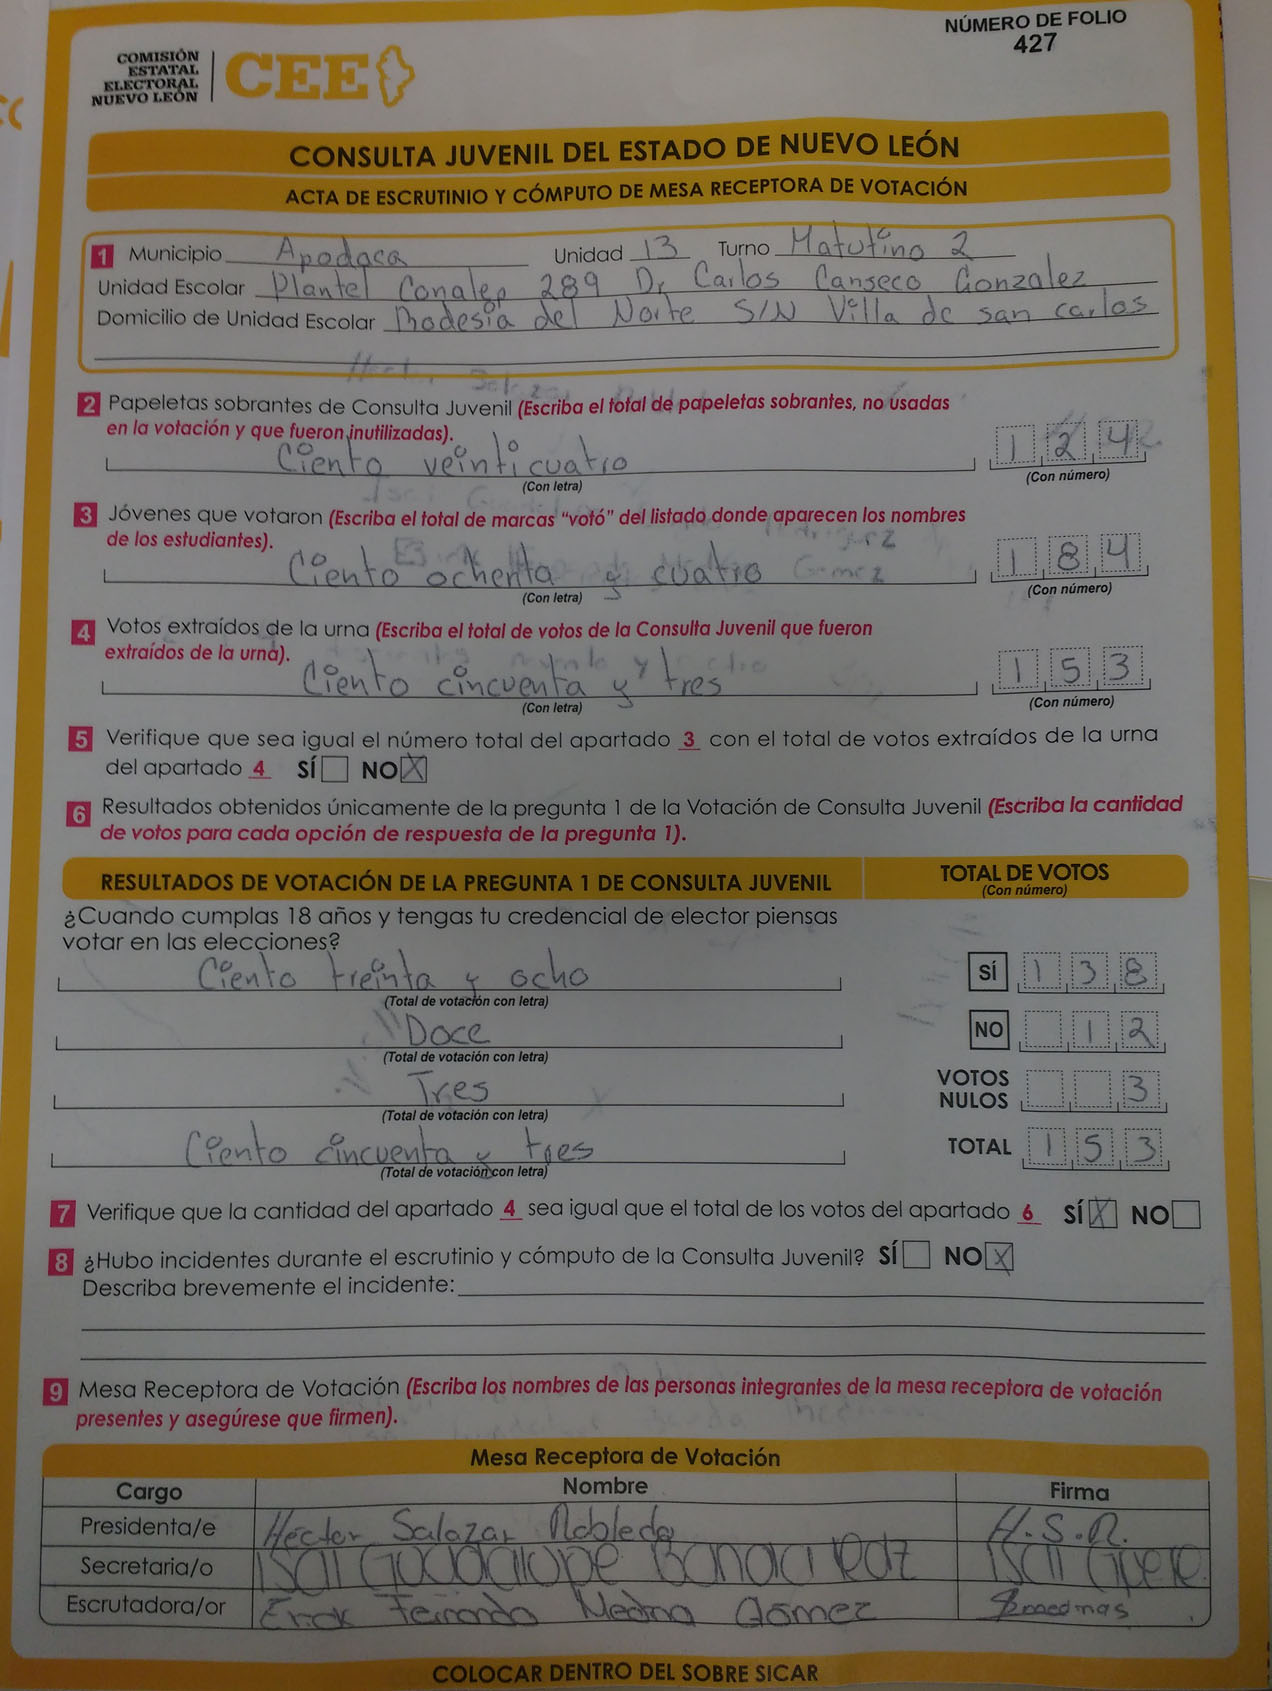 NÚMERO DE FOLIO
427
COMISIÓN
ESTATAL
ELECTORAL
NUEVO LEÓN
CEE
CONSULTA JUVENIL DEL ESTADO DE NUEVO LEÓN
ACTA DE ESCRUTINIO Y CÓMPUTO DE MESA RECEPTORA DE VOTACIÓN
1 Municipio Apodaca Unidad 13 Turno Matutino 2
Unidad Escolar Plantel Conalep 289 Dr Carlos Canseco Gonzalez
Domicilio de Unidad Escolar Rodesia del Norte S/N Villa de san carlos
2 Papeletas sobrantes de Consulta Juvenil (Escriba el total de papeletas sobrantes, no usadas
en la votación y que fueron inutilizadas).
Ciento veinticuatro 1 2 4
(Con letra) (Con número)
3 Jóvenes que votaron (Escriba el total de marcas "votó" del listado donde aparecen los nombres
de los estudiantes).
Ciento ochenta y cuatro 1 8 4
(Con letra) (Con número)
4 Votos extraídos de la urna (Escriba el total de votos de la Consulta Juvenil que fueron
extraídos de la urna).
Ciento cincuenta y tres 1 5 3
(Con letra) (Con número)
5 Verifique que sea igual el número total del apartado 3 con el total de votos extraídos de la urna
del apartado 4 SÍ NO X
6 Resultados obtenidos únicamente de la pregunta 1 de la Votación de Consulta Juvenil (Escriba la cantidad
de votos para cada opción de respuesta de la pregunta 1).
RESULTADOS DE VOTACIÓN DE LA PREGUNTA 1 DE CONSULTA JUVENIL TOTAL DE VOTOS
(Con número)
¿Cuando cumplas 18 años y tengas tu credencial de elector piensas
votar en las elecciones?
Ciento treinta y ocho SÍ 1 3 8
(Total de votación con letra)
Doce NO 1 2
(Total de votación con letra)
Tres VOTOS NULOS 3
(Total de votación con letra)
Ciento cincuenta y tres TOTAL 1 5 3
(Total de votación con letra)
7 Verifique que la cantidad del apartado 4 sea igual que el total de los votos del apartado 6 SÍ X NO
8 ¿Hubo incidentes durante el escrutinio y cómputo de la Consulta Juvenil? SÍ NO X
Describa brevemente el incidente:
9 Mesa Receptora de Votación (Escriba los nombres de las personas integrantes de la mesa receptora de votación
presentes y asegúrese que firmen).
Mesa Receptora de Votación
Cargo Nombre Firma
Presidenta/e Héctor Salazar Robledo H.S.R.
Secretaria/o Isai Guadalupe
Escrutadora/or Erick Fernando Medina Gómez
COLOCAR DENTRO DEL SOBRE SICAR